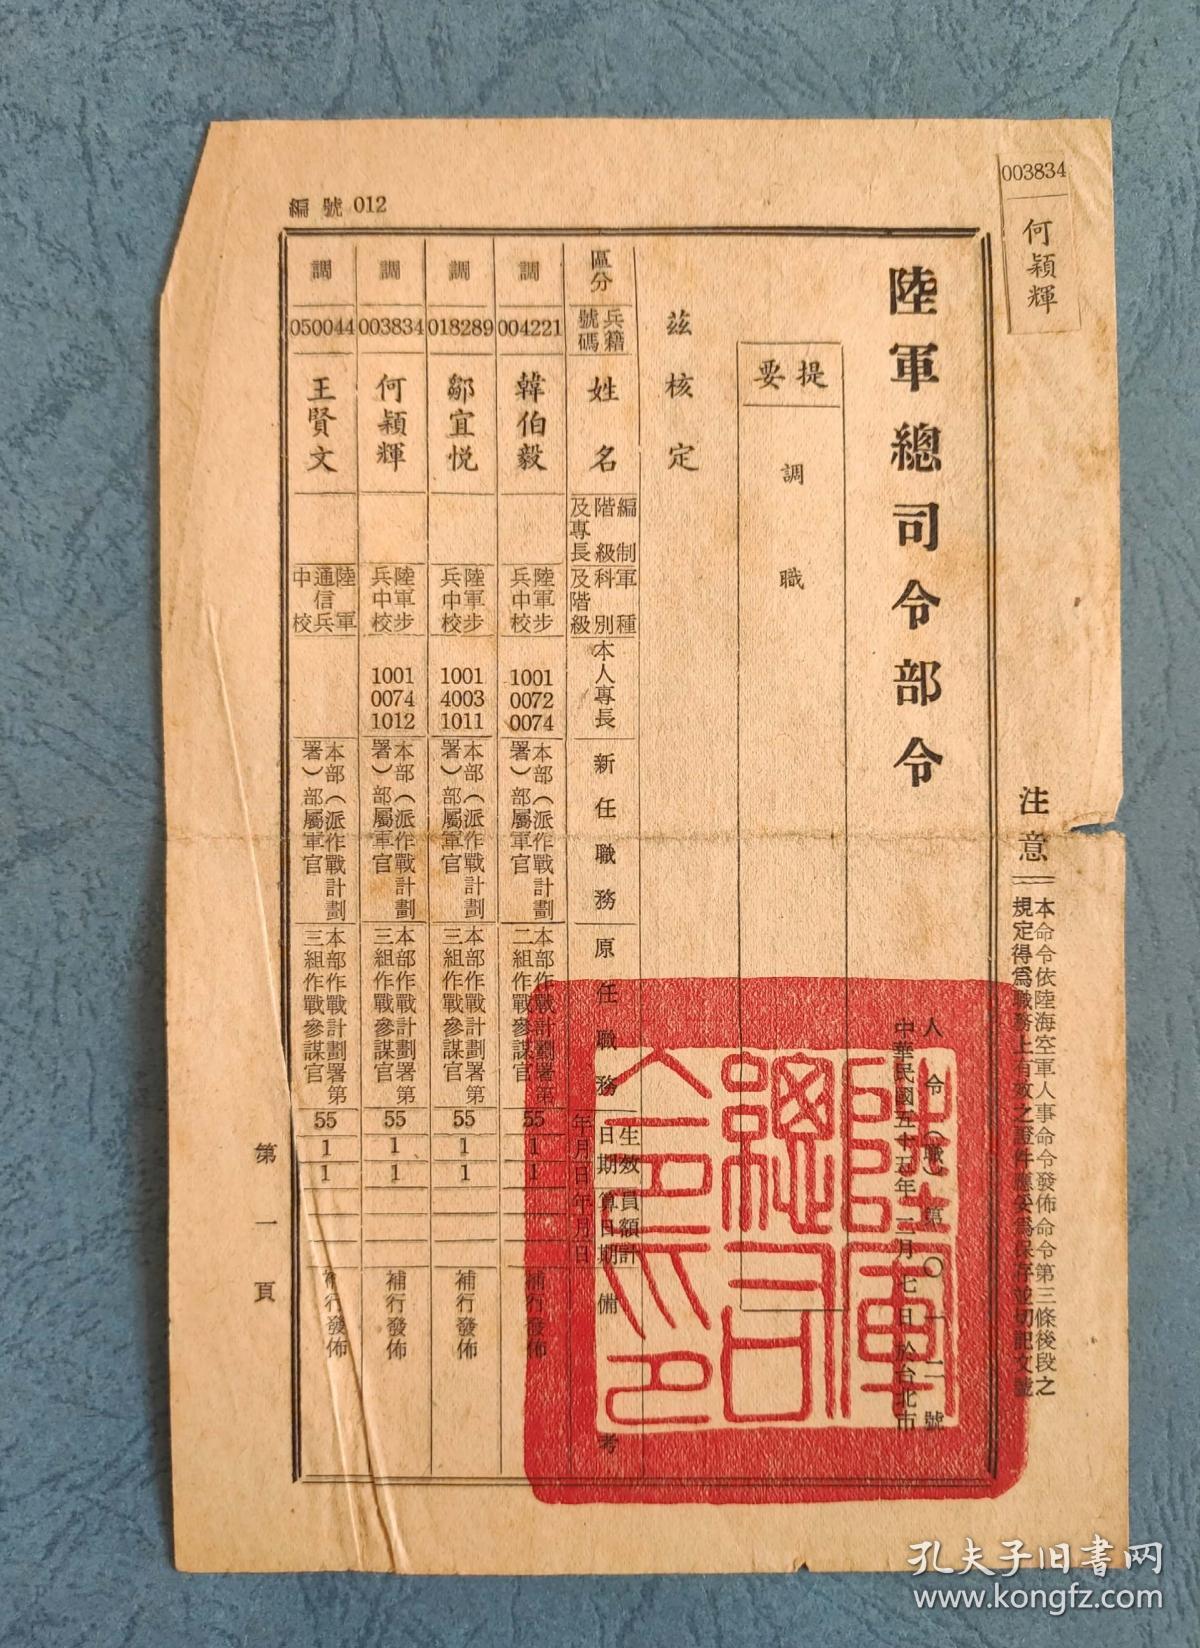 003834
何穎輝
注意
本命令依陸海空軍人事命令發佈命令第三條後段之
規定得為職務上有效之證件應妥為保存並切記文號
陸軍總司令部令
人令(職)第〇一二號
中華民國五十五年二月七日於台北市
提要
調職
茲核定
區分
兵籍號碼
姓名
編制階級及專長
軍種科別及階級
本人專長
新任職務
原任職務
生效日期
年月日
員額計算日期
年月日
備考
調
004221
韓伯毅
陸軍步兵中校
1001
0072
0074
本部(派作戰計劃署)部屬軍官
本部作戰計劃署第二組作戰參謀官
55
1
1
補行發佈
調
018289
鄒宜悅
陸軍步兵中校
1001
4003
1011
本部(派作戰計劃署)部屬軍官
本部作戰計劃署第三組作戰參謀官
55
1
1
補行發佈
調
003834
何穎輝
陸軍步兵中校
1001
0074
1012
本部(派作戰計劃署)部屬軍官
本部作戰計劃署第三組作戰參謀官
55
1
1
補行發佈
調
050044
王賢文
陸軍通信兵中校
本部(派作戰計劃署)部屬軍官
本部作戰計劃署第三組作戰參謀官
55
1
1
補行發佈
編號 012
第一頁
陸軍總司令印
孔夫子旧书网
www.kongfz.com